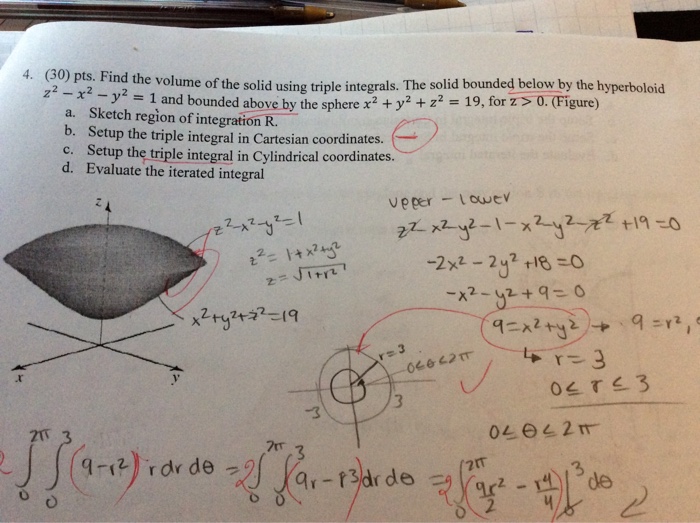 4. (30) pts. Find the volume of the solid using triple integrals. The solid bounded below by the hyperboloid
z² − x² − y² = 1 and bounded above by the sphere x² + y² + z² = 19, for z > 0. (Figure)
a. Sketch region of integration R.
b. Setup the triple integral in Cartesian coordinates.
c. Setup the triple integral in Cylindrical coordinates.
d. Evaluate the iterated integral
z
x
y
z²-x²-y²=1
z² = 1+x²+y²
z = √1+r²
x²+y²+z²=19
upper - lower
z² x² y² -1 -x² -y² -z² +19 =0
-2x² - 2y² +18 =0
-x² - y² + 9 = 0
9=x²+y² → 9 = r²,
↳ r = 3
0 ≤ r ≤ 3
r=3
0≤θ≤2π
-3
3
0 ≤ θ ≤ 2π
2∫₀^2π ∫₀^3 (9-r²) r dr dθ = 2∫₀^2π ∫₀^3 (9r - r³) dr dθ = 2∫₀^2π (9r²/2 - r⁴/4)|₀^3 dθ